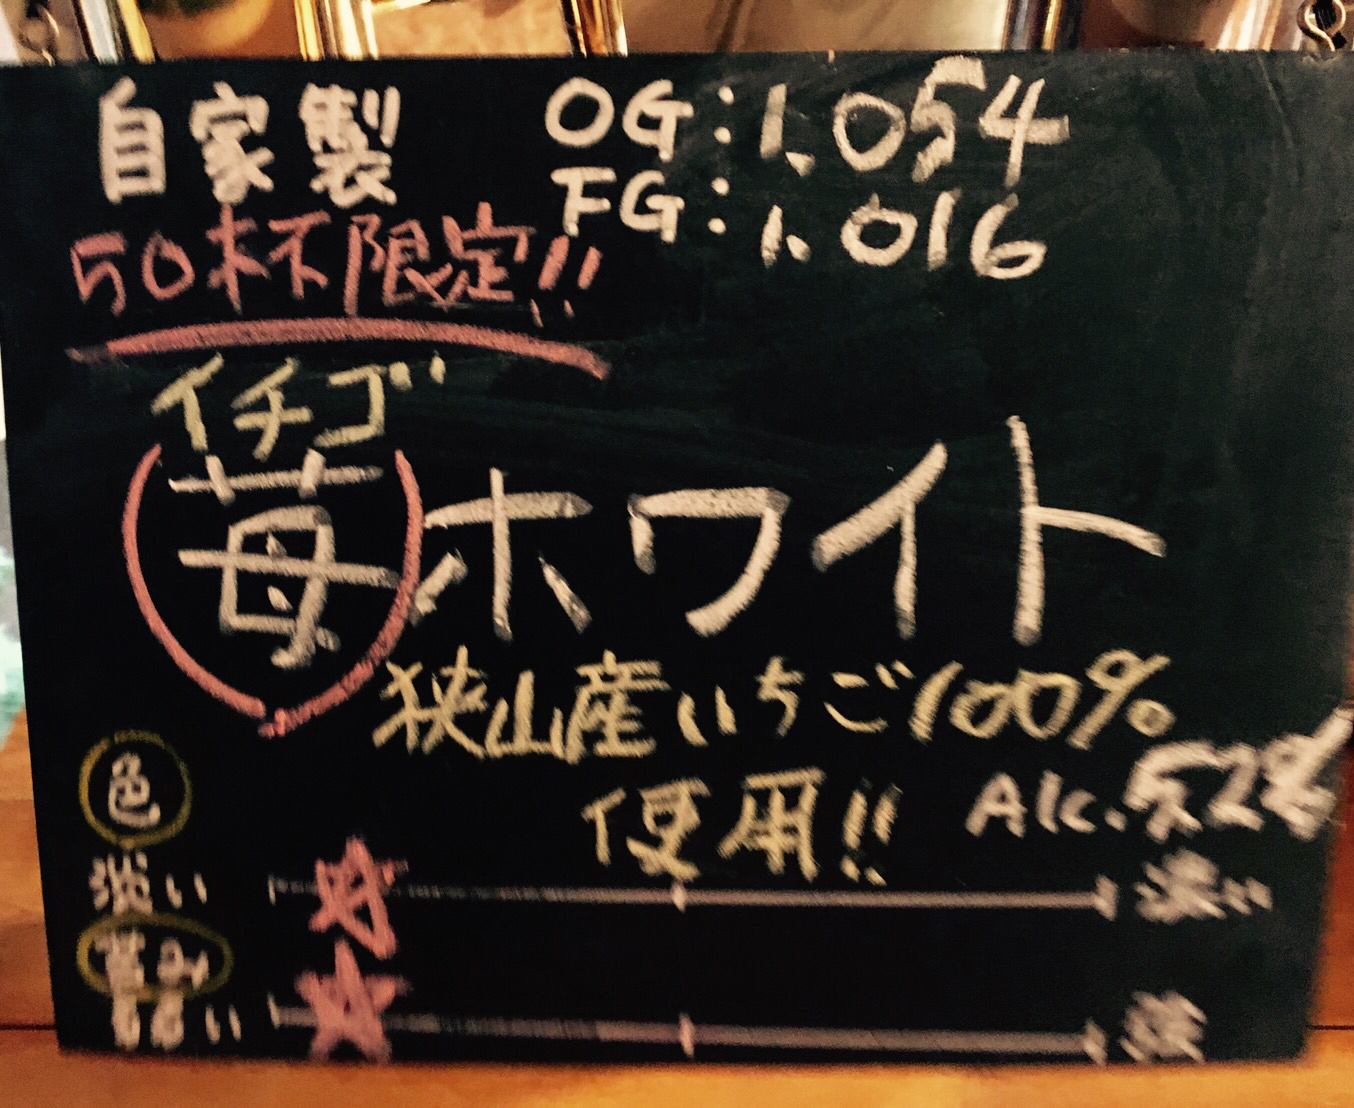 自家製
OG:1.054
FG:1.016
50杯限定!!
イチゴ
苺ホワイト
狭山産いちご100%
使用!!
Alc.5.2%
色
淡い
濃い
苦み
弱い
強